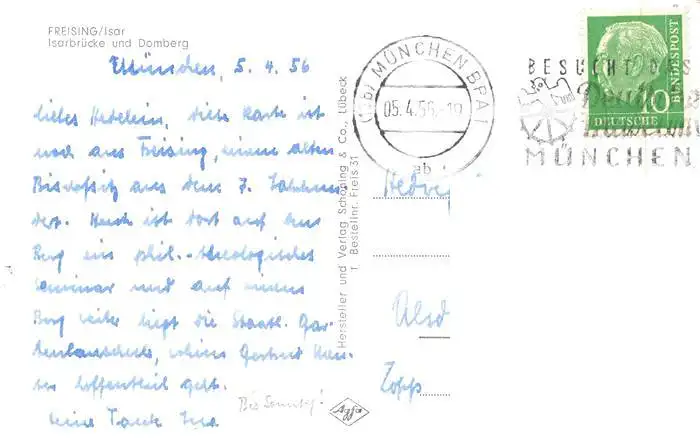 FREISING/Isar
Isarbrücke und Domberg
München, 5. 4. 56
liebes Hedelein, diese Karte ist
noch aus Freising, einem alten
Bischofsitz aus dem 7. Jahrhun
dert. Heute ist dort auf dem
Berg ein phil.-theologisches
Seminar und auf einem
Berg weiter liegt die Staatl. Gar
tenbauschule, wohin Gertrud
hoffentlich geht.
Deine Tante
Bis Sonntag!
Hersteller und Verlag Schöning & Co., Lübeck
1 Bestellnr. Freis 31
Agfa
(13b) MÜNCHEN BPA 1
05.4.56.-19
ab
BESUCHT DAS
Deutsche
Museum
MÜNCHEN
DEUTSCHE
BUNDESPOST
10
Hedwi
Alsd
Zopp